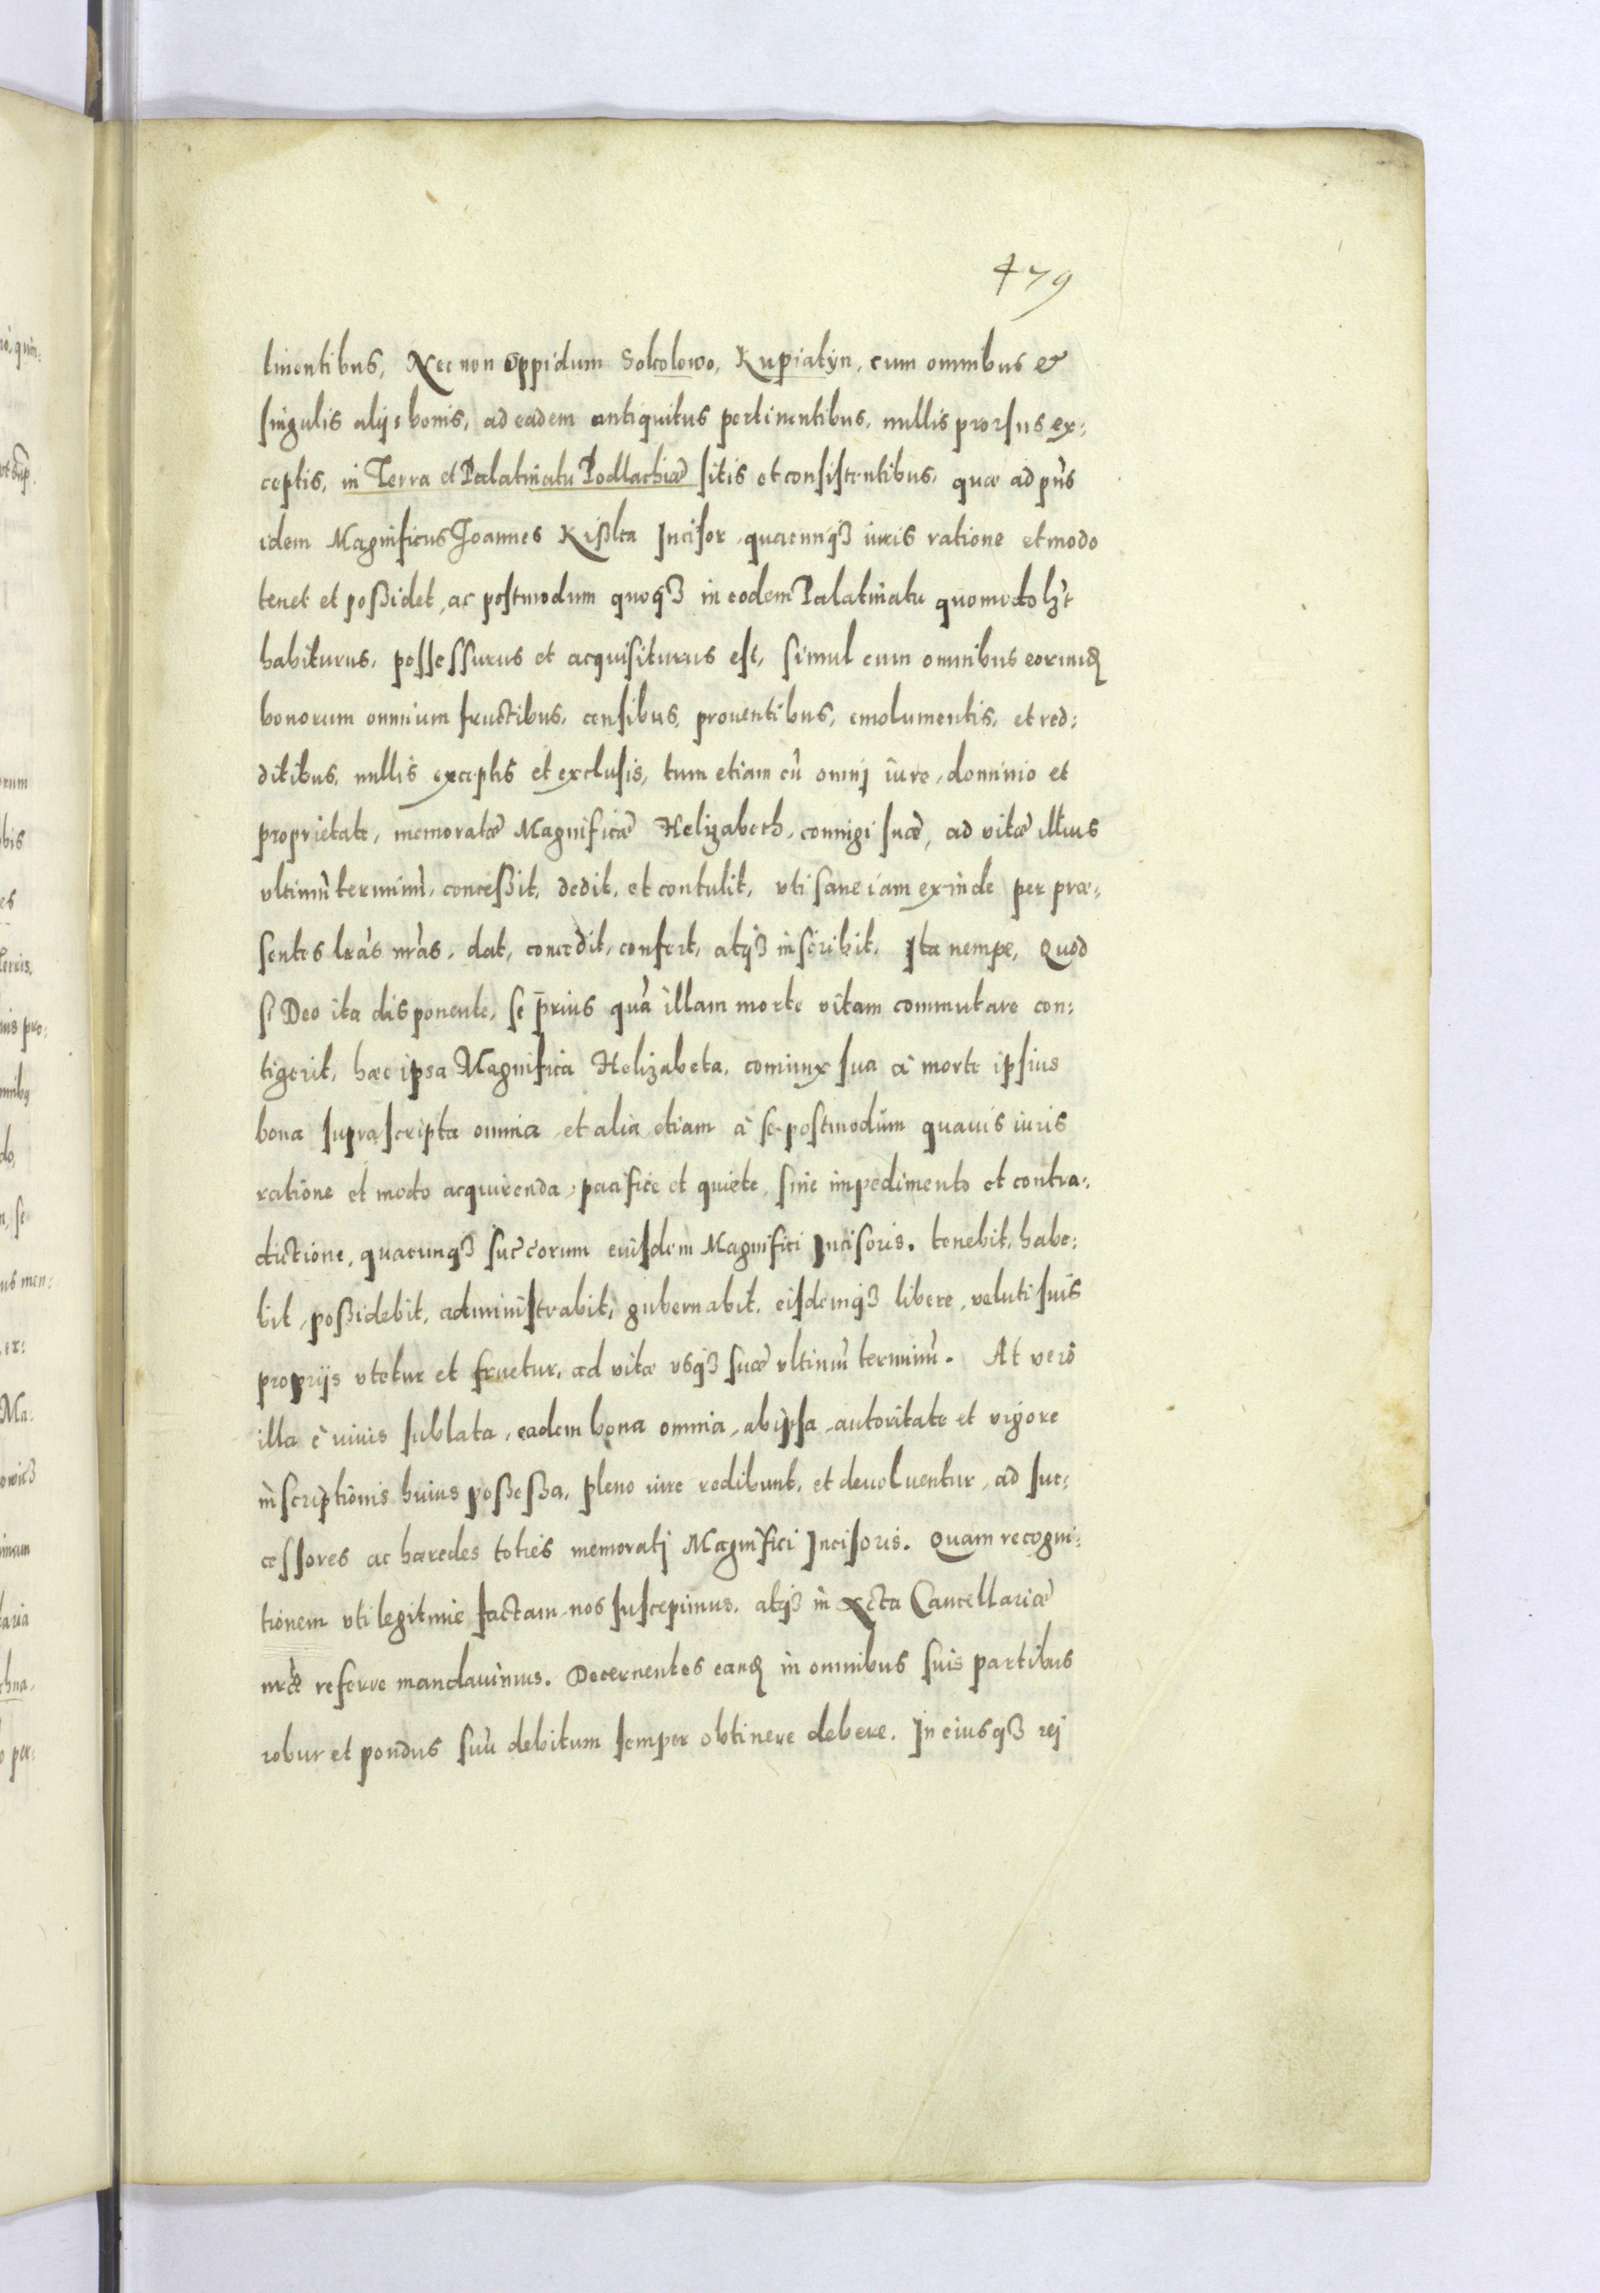 479
tinentibus, Nec non oppidum Sokolowo, Kupiatyn, cum omnibus &
singulis alijs bonis, ad eadem antiquitus pertinentibus, nullis prorsus ex:
ceptis, in Terra et Palatinatu Podlachiæ sitis et consistentibus, quæ ad pn̄s
idem Magnificus Joannes Kißka Incisor quacunqȝ iuris ratione et modo
tenet et poßidet, ac postmodum quoqȝ in eodem Palatinatu quomodolȝt
habiturus, possessurus et acquisiturus est, simul cum omnibus eorundē
bonorum omnium fructibus, censibus, prouentibus, emolumentis, et red:
ditibus, nullis exceptis et exclusis, tum etiam cū omni iure, dominio et
proprietate, memoratæ Magnificæ Helizabeth, coniugi suæ, ad vitæ illius
vltimū terminū, conceßit, dedit, et contulit, vti sane iam exinde per præ:
sentes lr̄as nr̄as, dat, concedit, confert, atqȝ inscribit. Ita nempe, Quod
si Deo ita disponente, se prius quā illam morte vitam commutare con:
tigerit, hæc ipsa Magnifica Helizabeta, coniunx sua à morte ipsius
bona suprascripta omnia et alia etiam à se postmodum quauis iuris
ratione et modo acquirenda, pacifice et quiete, sine impedimento et contra:
dictione, quacunqȝ succ̄orum eiusdem Magnifici Incisoris. tenebit, habe:
bit, poßidebit, administrabit, gubernabit, eisdemqȝ libere, veluti suis
proprijs vtetur et fruetur, ad vitæ vsqȝ suæ vltimū terminū. At verò
illa è viuis sublata, eadem bona omnia, ab ipsa, autoritate et vigore
inscriptionis huius poßeßa, pleno iure redibunt, et deuoluentur, ad suc:
cessores ac hæredes toties memorati Magnifici Incisoris. Quam recogni:
tionem vti legitime factam nos suscepimus, atqȝ in Acta Cancellariæ
nr̄æ referre mandauimus. Decernentes eandē in omnibus suis partibus
robur et pondus suū debitum semper obtinere debere. In eiusqȝ rej